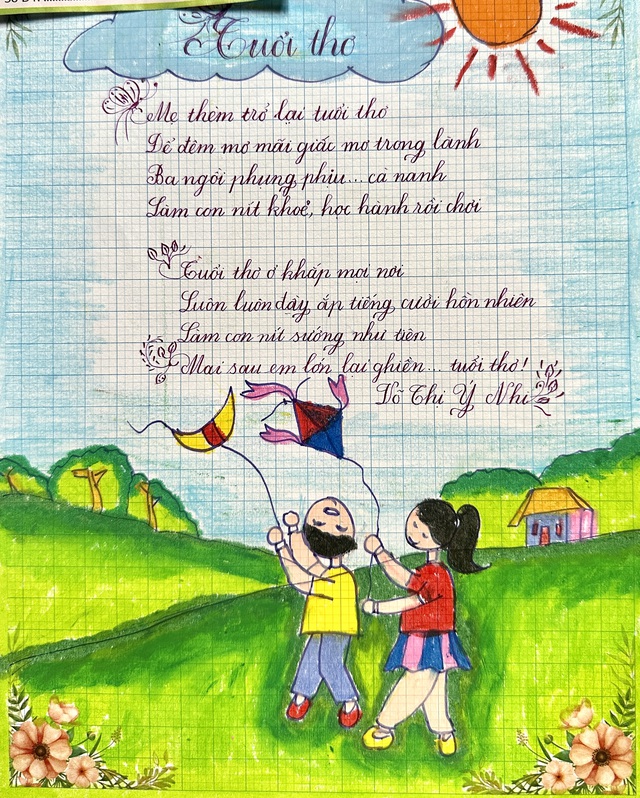 Tuổi thơ
Mẹ thèm trở lại tuổi thơ
Để đêm mơ mãi giấc mơ trong lành
Ba ngồi phụng phịu... cả nanh
Làm con nít khoẻ, học hành rồi chơi
Tuổi thơ ở khắp mọi nơi
Luôn luôn đầy ắp tiếng cười hồn nhiên
Làm con nít sướng như tiên
Mai sau em lớn lại ghiền... tuổi thơ!
Võ Thị Ý Nhi